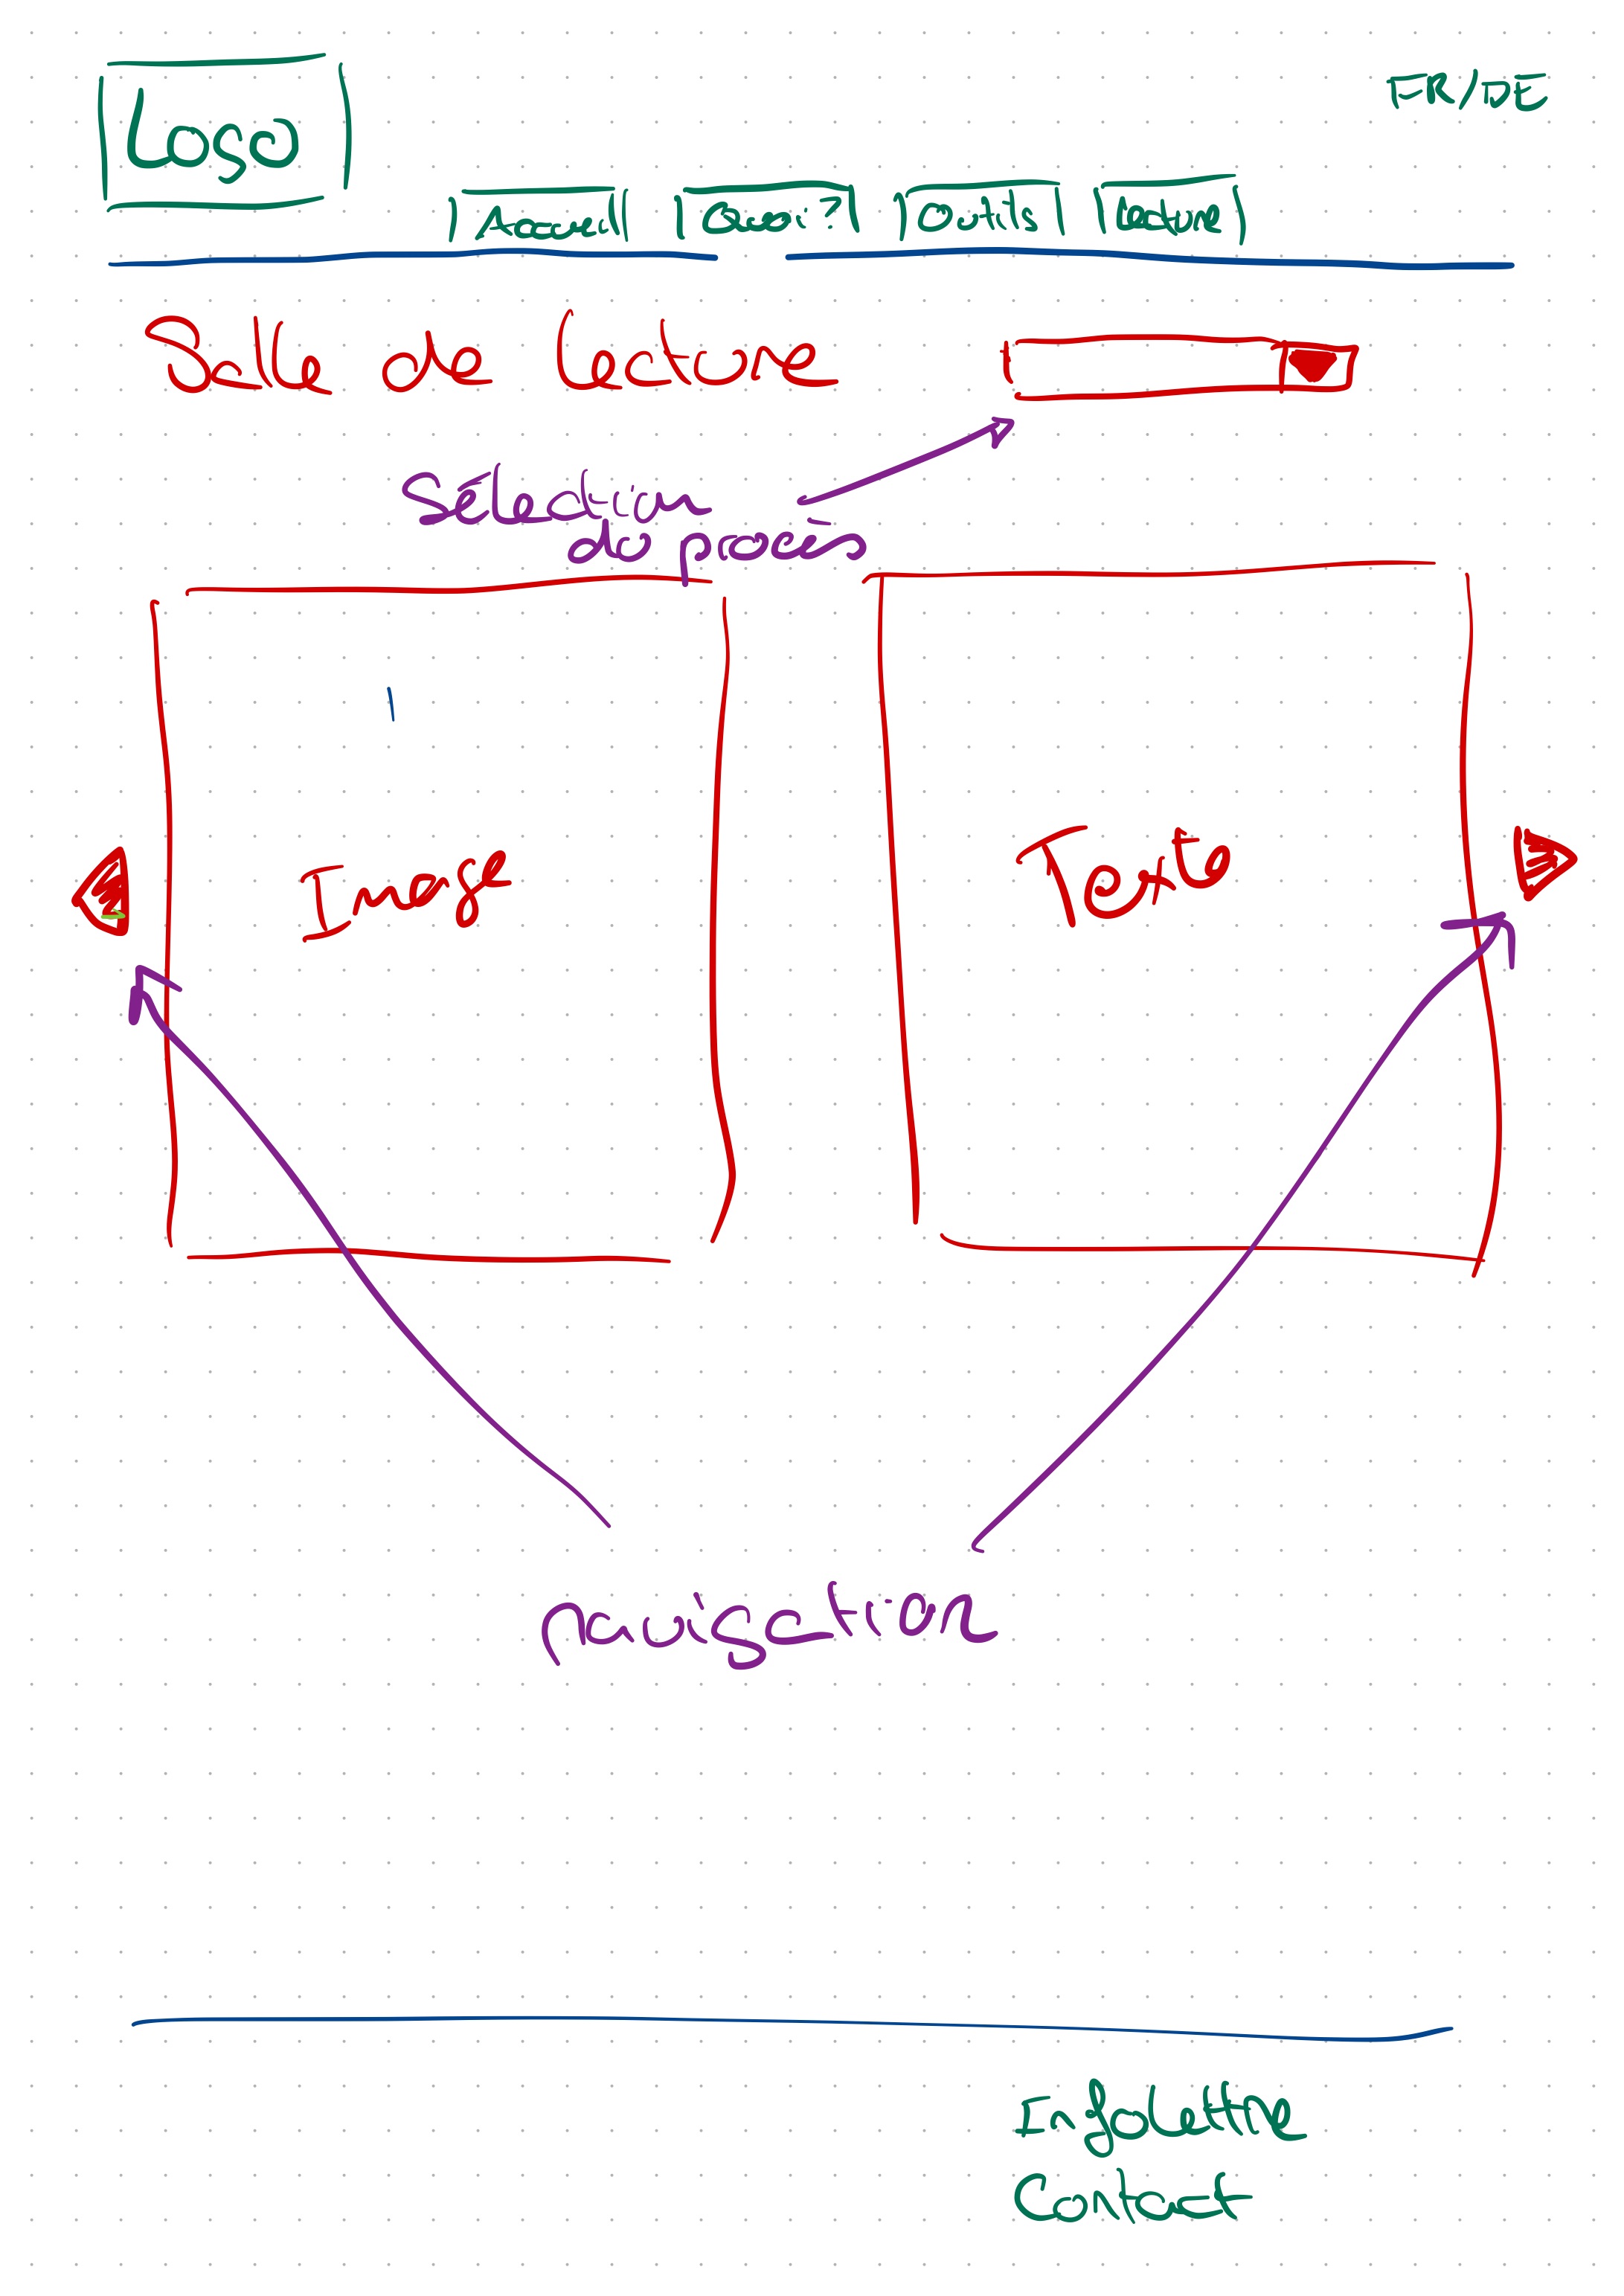 Logo
FR/DE
Accueil Quoi? Outils Lecture
Salle de lecture
Sélection
du procès
Image Texte
navigation
Infolettre
Contact